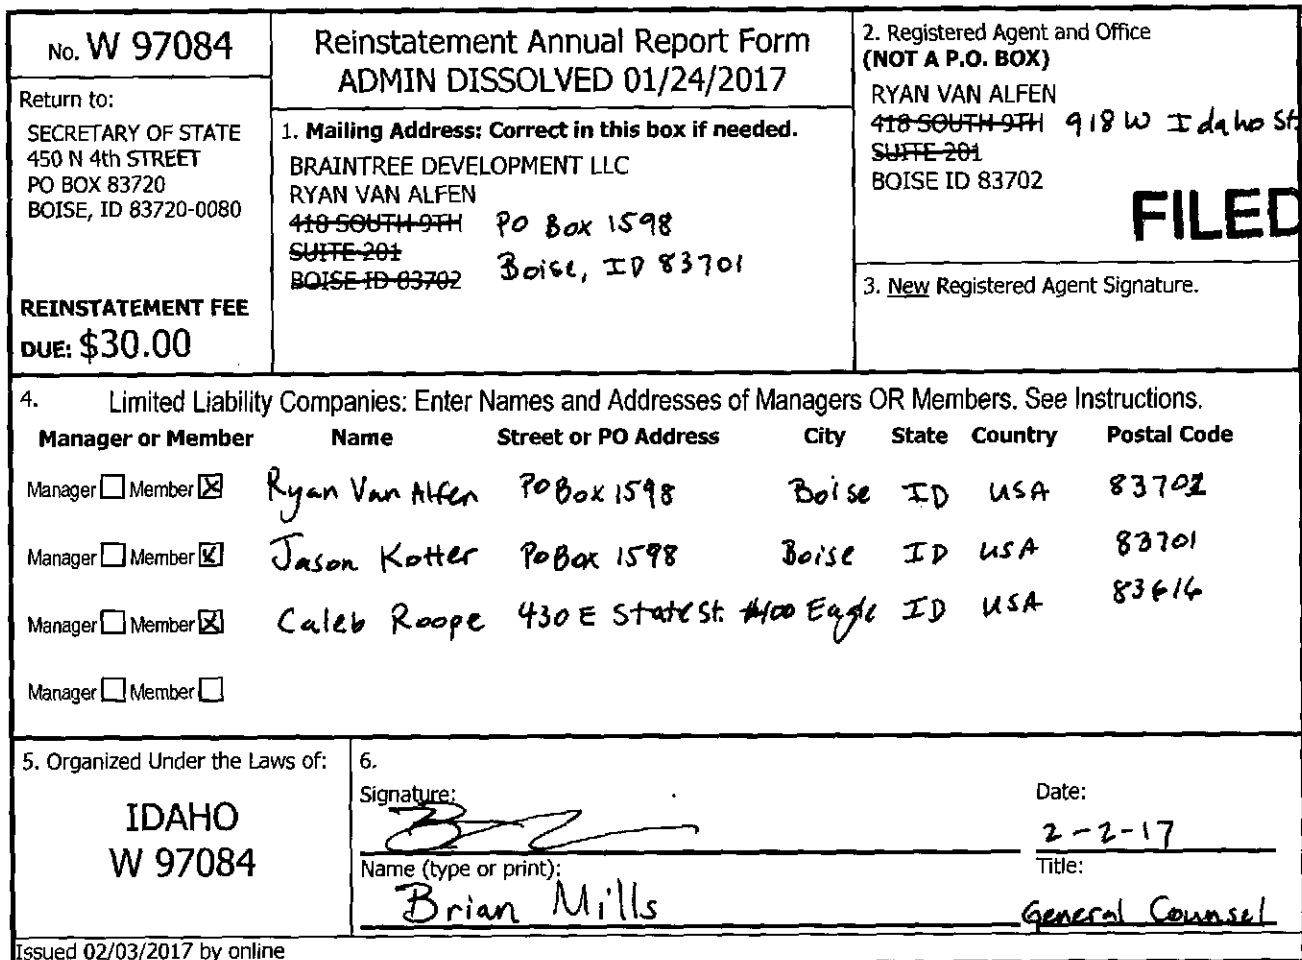 No. W 97084
Return to:
SECRETARY OF STATE
450 N 4th STREET
PO BOX 83720
BOISE, ID 83720-0080
REINSTATEMENT FEE
DUE: $30.00
Reinstatement Annual Report Form
ADMIN DISSOLVED 01/24/2017
1. Mailing Address: Correct in this box if needed.
BRAINTREE DEVELOPMENT LLC
RYAN VAN ALFEN
418 SOUTH 9TH PO Box 1598
SUITE 201
BOISE ID 83702 Boise, ID 83701
2. Registered Agent and Office
(NOT A P.O. BOX)
RYAN VAN ALFEN
418 SOUTH 9TH 918 W Idaho St.
SUITE 201
BOISE ID 83702
FILED
3. New Registered Agent Signature.
4. Limited Liability Companies: Enter Names and Addresses of Managers OR Members. See Instructions.
Manager or Member Name Street or PO Address City State Country Postal Code
Manager Member Ryan Van Alfen PO Box 1598 Boise ID USA
Manager Member Jason Kotter PO Box 1598 Boise ID USA 83701
Manager Member Caleb Roope 430 E State St. #100 Eagle ID USA 83616
Manager Member
5. Organized Under the Laws of:
IDAHO
W 97084
6.
Signature:
Date:
2-2-17
Name (type or print):
Brian Mills
Title:
General Counsel
Issued 02/03/2017 by online